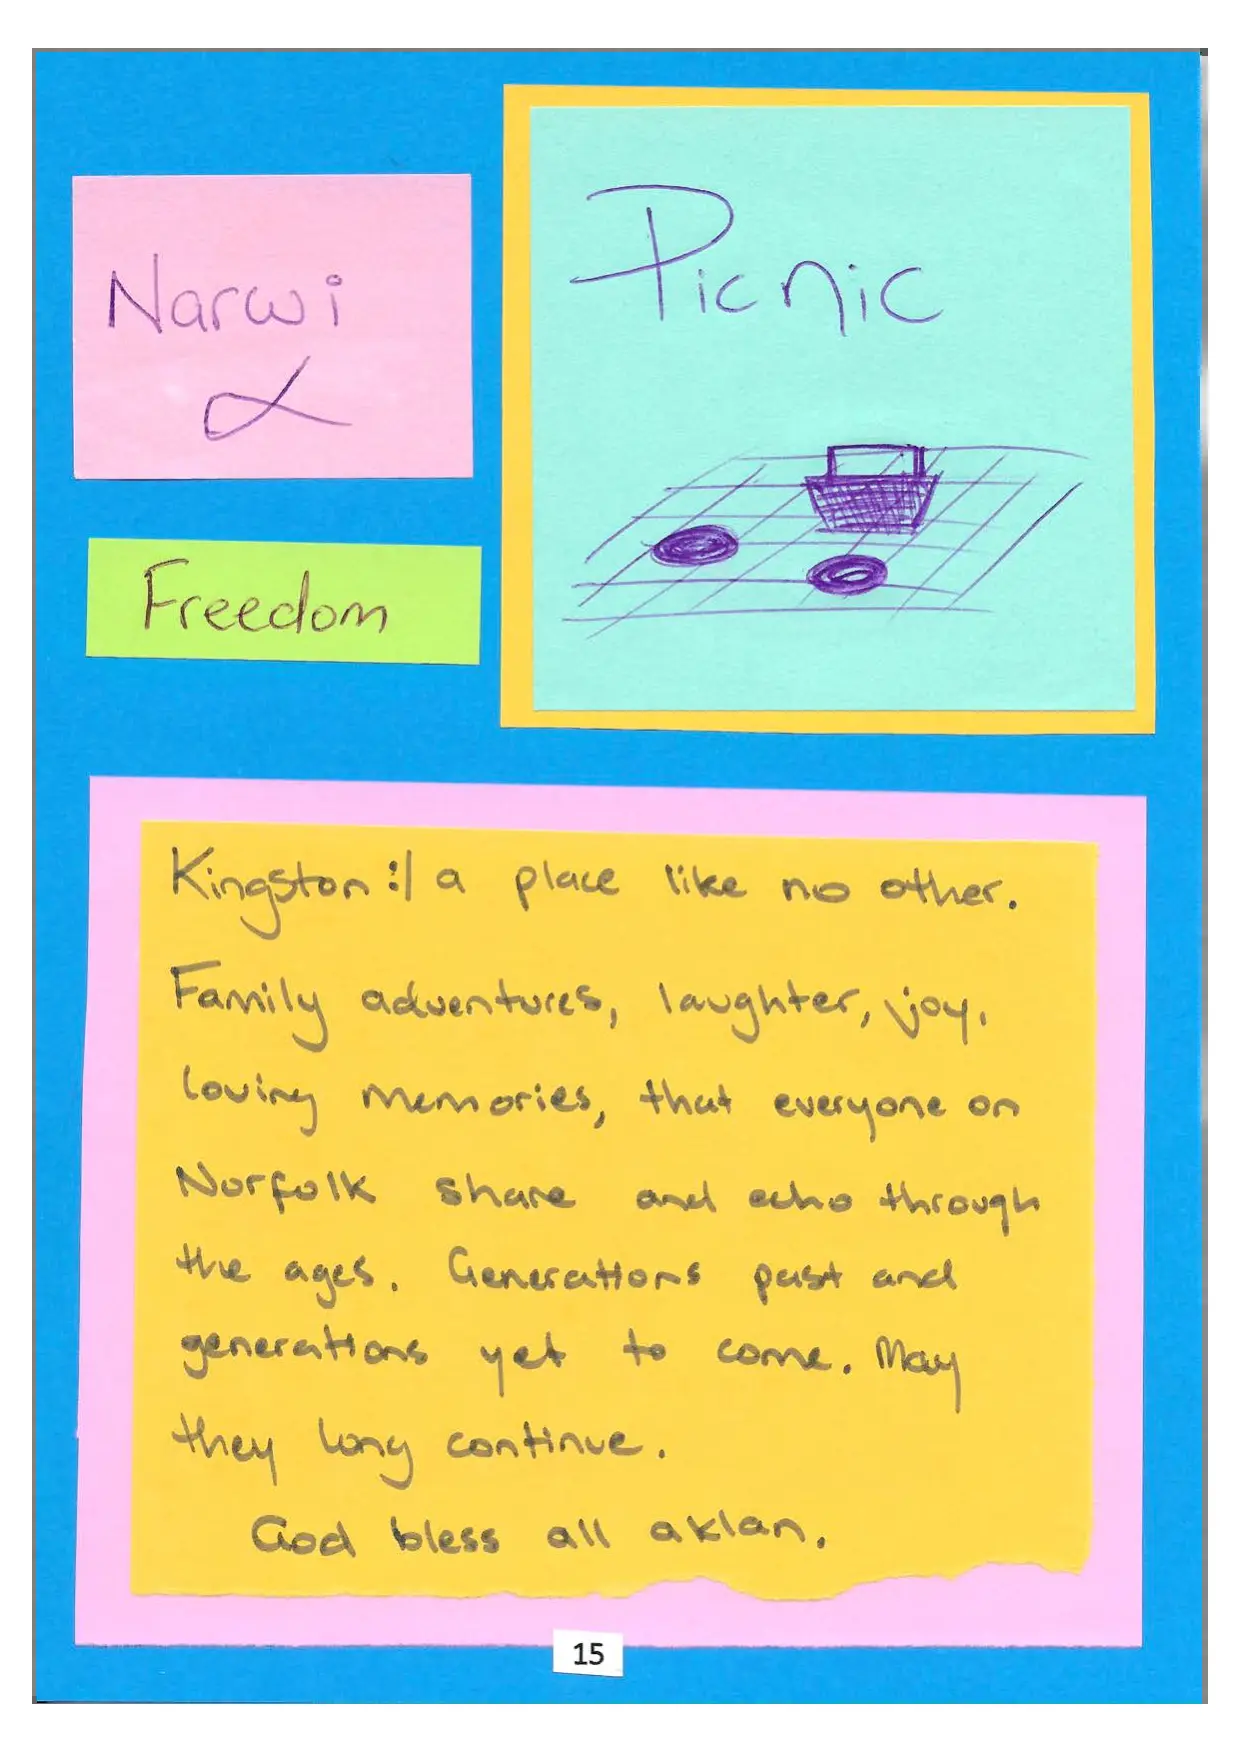 Narwi
Freedom
Picnic
Kingston :| a place like no other.
Family adventures, laughter, joy,
loving memories, that everyone on
Norfolk share and echo through
the ages. Generations past and
generations yet to come. May
they long continue.
God bless all aklan.
15